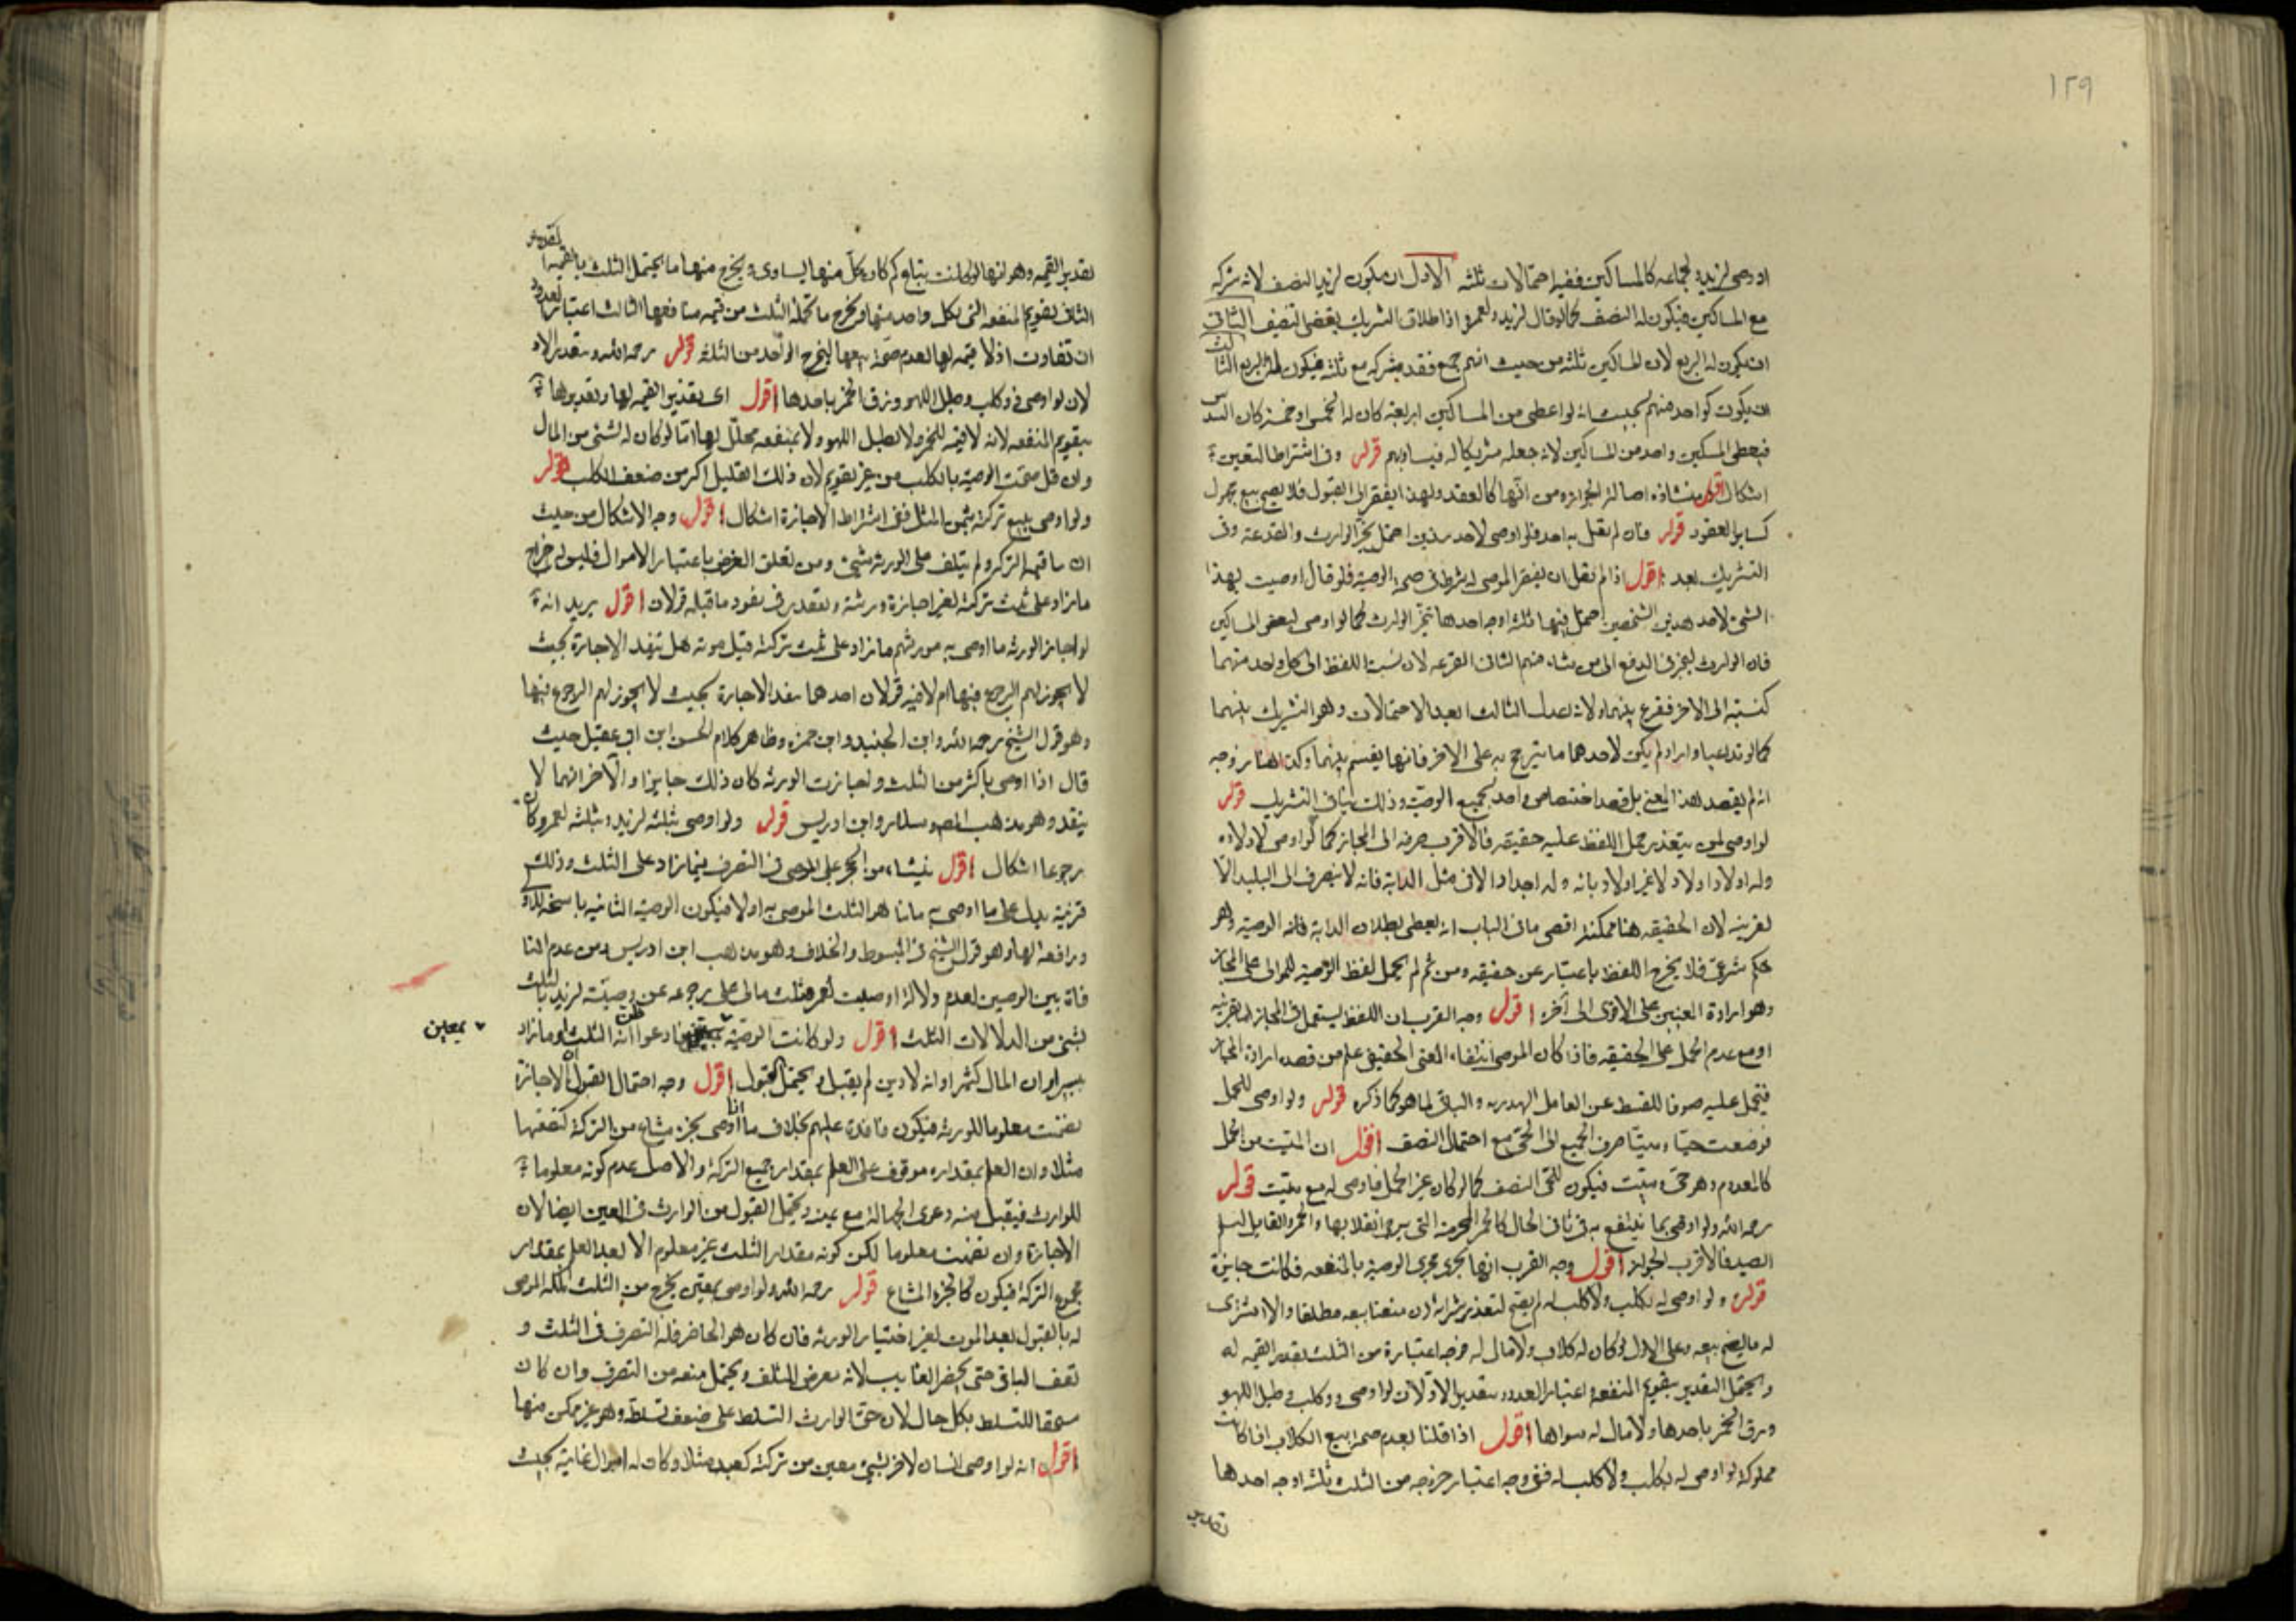 ١٢٩
اوصى لزيد ولجماعه كالمساكين ففيه احتمالات ثلثه الاول ان يكون لزيد النصف لانه شركه
مع المساكين فيكون له النصف كما لو قال لزيد ولعمرو اذ اطلاق التشريك يقضى لتنصيف الثانى
ان يكون له الربع لان المساكين ثلثه من حيث انهم جمع فقد شركه مع ثلثه فيكون له الربع الثالث
ان يكون كواحد منهم بحيث انه لو اعطى من المساكين اربعة كان له الخمس او خمسة كان السدس
فيعطى المسكين واحد من المساكين لانه جعله شريكا له فيساويهم قوله وفى اشتراط التعيين
اشكال اقول ينشا من اصالة الجواز ومن انها كالعقد ولهذا يفتقر الى القبول فلا يصح بيع مجهول
كساير العقود قوله فان لم نقل به احد فلو اوصى لاحد هذين احتمل تخير الوارث والقرعة وفى
التشريك بعد اقول اذا لم نقل ان تعين الموصى له شرط فى صحة الوصية فلو قال اوصيت بهذا
الشىء لاحد هذين الشخصين احتمل فيها ثلثه اوجه احدها تخير الوارث كما لو اوصى لبعض المساكين
فان الوارث يتخير فى الدفع الى من شاء منهم الثانى القرعه لان نسبة اللفظ الى كل واحد منهما
كنسبته الى الاخر فيقرع بينهما ولانه اعدل الثالث ابعد الاحتمالات وهو التشريك بينهما
كما لو تداعيا ولم يكن لاحدهما ما يترجح به على الاخر فانها يقسم بينهما وكذا هنا ووجه
انه لم يقصد هذا المعنى بل قصد اختصاص واحد بجميع الوصية وذلك ينافى التشريك قوله
لو اوصى لمن يتعذر حمل اللفظ عليه حقيقه فالاقرب صرفه الى المجاز كما لو اوصى لاولاده
وله اولاد اولاد لا غير او لابائه وله اجداد الا فى مثل الدابة فانه لا ينصرف الى البليد الا
لقرينة لان الحقيقه هنا ممكنة اقصى ما فى الباب انه يعطى بطلان الدابة فانه الوصية وهو
حكم شرعى فلا يخرج اللفظ باعتباره عن حقيقه ومن ثم لم يحمل لفظ الوصية للموالى على المجاز
وهو ارادة المعنيين على الاقوى الى اخره اقول وجه القرب ان اللفظ يستعمل فى المجاز لقرينه
او مع عدم الحمل على الحقيقه فاذا كان الموصى انتفاء المعنى الحقيقى علم من قصده ارادة المجاز
فيحمل عليه صونا للفظ عن العاقل الهدريه والباقى لما هو كما ذكره قوله ولو اوصى للحمل
فوضعت حيا وميتا صرف الجميع الى الحى مع احتمال النصف اقول ان الميت من الحمل
كالمعدوم وهو حى وميت فيكون للحى النصف كما لو كان غير الحمل فاوصى له مع ميت قوله
رحمه الله ولو اوصى بما ينتفع به فى ثانى الحال كالخمر المحترمه التى يرجى انقلابها والجرو القابل لتعليم
الصيد فالاقرب الجواز اقول وجه القرب انها يجرى مجرى الوصية بالمنفعه فكانت جايزة
قوله ولو اوصى له بكلب ولا كلب له لم يصح لتعذر شرائه ان منعنا بيعه مطلقا والا اشترى
له ما يصح بيعه وعلى الاول لو كان له كلاب ولا مال له فوجه اعتباره من الثلث تقدير القيمه له
ويحتمل التقدير بتقويم المنفعه واعتبار العدد وبتقدير الاول لان لو اوصى وكلب وطبل اللهو
وزق الخمر باحدها ولا مال له سواها اقول اذا قلنا بعدم صحة بيع الكلاب اذا كانت
مملوكة لو اوصى له بكلب ولا كلب له ففى وجه اعتبار خروجه من الثلث ثلثه اوجه احدها
تقدير
تقدير القيمه وهو انها لو كانت تباع كم كان كل منها يساوى يخرج منها ما يحتمل الثلث بالقيمة
الثانى تقويم المنفعه التى بكل واحد منها ويخرج ما تحمله الثلث من قيمه منافعها الثالث اعتبار العدد
ان تفاوت اذ لا قيمه لها لعدم صحة بيعها ليخرج الواحد من الثلثه قوله رحمه الله وبتقدير الاول
لان لو اوصى وكلب وطبل اللهو وزق الخمر باحدها اقول اى بتقدير القيمه لها وتقديرها
بتقويم المنفعه لانه لا قيمه للخمر ولا لطبل اللهو ولا منفعه محلل لها اما لو كان له شئ من المال
وان قل صحت الوصية بالكلب من غير تقويم لان ذلك القليل اكثر من ضعف الكلب قوله
ولو اوصى ببيع تركته بثمن المثل ففى اشتراط الاجازة اشكال اقول وجه الاشكال من حيث
ان ما قيمه التركه ولم يتلف على الورثه شئ ومن تعلق الغرض باعتبار الاموال فليس له اخراج
ما زاد على ثلث تركته لغير اجازة ورثته وبتقدير فى نفوذ ما قبله قولان اقول يريد انه
لو اجاز الورثه ما اوصى به مورثهم ما زاد على ثلث تركته قبل موته هل تنفذ الاجازة بحيث
لا يجوز لهم الرجوع فيها ام لا فيه قولان احدهما تنفذ الاجازة بحيث لا يجوز لهم الرجوع فيها
وهو قول الشيخ رحمه الله وابن الجنيد وابن حمزه وظاهر كلام الحسن ابن ابى عقيل حيث
قال اذا اوصى باكثر من الثلث واجازت الورثه كان ذلك جايزا والاخر انها لا
ينفذ وهو مذهب المص وسلار وابن ادريس قوله ولو اوصى بثلثه لزيد وبثلثه لعمرو كان
رجوعا اشكال اقول ينشا من الحجر على الموصى فى التصرف فيما زاد على الثلث وذلك
قرينة يدل على ما اوصى به ثانيا هو الثلث الموصى به اولا فيكون الوصية الثانيه ناسخة للاولى
ورافعه لها وهو قول الشيخ فى المبسوط والخلاف وهو مذهب ابن ادريس ومن عدم المنافاة
بين الوصيتين لعدم دلالة اوصيت لعمرو بثلث مالى على رجوعه عن وصيته لزيد بالثلث
بشئ من الدلالات الثلث اقول ولو كانت الوصية بمعين فادعوا ظن انه الثلث او ما زاد
بمعين
بيسير او ان المال كثير او انه لا دين لم يقبل ويحتمل القبول اقول وجه احتمال القبول ان الاجازة
تضمنت معلوما للورثه فيكون نافذة عليهم بخلاف ما اذا اوصى بجزء مشاع من التركة كنصفها
مثلا وان العلم بمقداره موقوف على العلم بمقدار جميع التركة والاصل عدم كونه معلوما
للوارث فيقبل منه دعوى الجهالة مع يمينه ويحتمل القبول من الوارث فى العين ايضا لان
الاجازة وان تضمنت معلوما لكن كونه مقدار الثلث غير معلوم الا بعد العلم بمقدار
مجموع التركة فيكون كالجزء المشاع قوله رحمه الله ولو اوصى بمعين يخرج من الثلث ملكه الموصى
له بالقبول بعد الموت لغير اختيار الورثه فان كان هو الحاضر فله التصرف فى الثلث و
تقف الباقى حتى يحضر الغايب لانه معرض للتلف ويحتمل منعه من التصرف وان كان
مستحقا للتسلط بكل حال لان حق الوارث التسلط على ضعف تسلطه وهو غير ممكن هنا
اقول انه لو اوصى انسان لاخر بشئ معين من تركته كعبد مثلا وكان له اموال غايبة بحيث